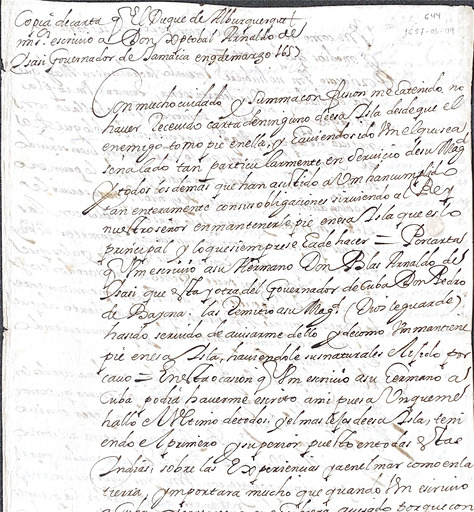 Copia de carta q El Duque de Alburquerque
mi sr escrivio a Don Xptobal Arnaldo de
Isasi Governador de Jamaica en 9 de marzo 1657
644
1657-03-09
Con mucho cuidado y summa confusion me a tenido no
haver Recevido carta de ninguno de esa Isla desde que el
enemigo tomo pie en ella, y haviendo sido Vm el que sea
señalado tan particularmente en servicio de su Magd
y todos los demas que han asistido a Vm han cumplido
tan enteramente con sus obligaciones sirviendo al Rey
nuestro señor en mantenerse pie en esa Isla que es lo
principal y lo que siempre se ha de hacer = Por carta
q Vm escrivio a su Hermano Don Blas Arnaldo de
Isasi que esta y otra del Governador de Cuba Don Pedro
de Bayona, las Remitio a su Magd (Dios le guarde)
ha sido servido de avisarme dello y de como Vm mantiene
pie en esa Isla, haviendole sus naturales
cavo = En esta ocasion q Vm escrivio a su Hermano a
Cuba podia haverme escrito a mi pues a Vn que me
hallo el Vltimo de todos, y el mas lejos de esa Isla, teni
endo el primero y superior puesto en todas estas
Indias, sobre las Experiencias ya en el mar como en la
tierra, y importara mucho que quando Vm escrivio
a Cuba porque con